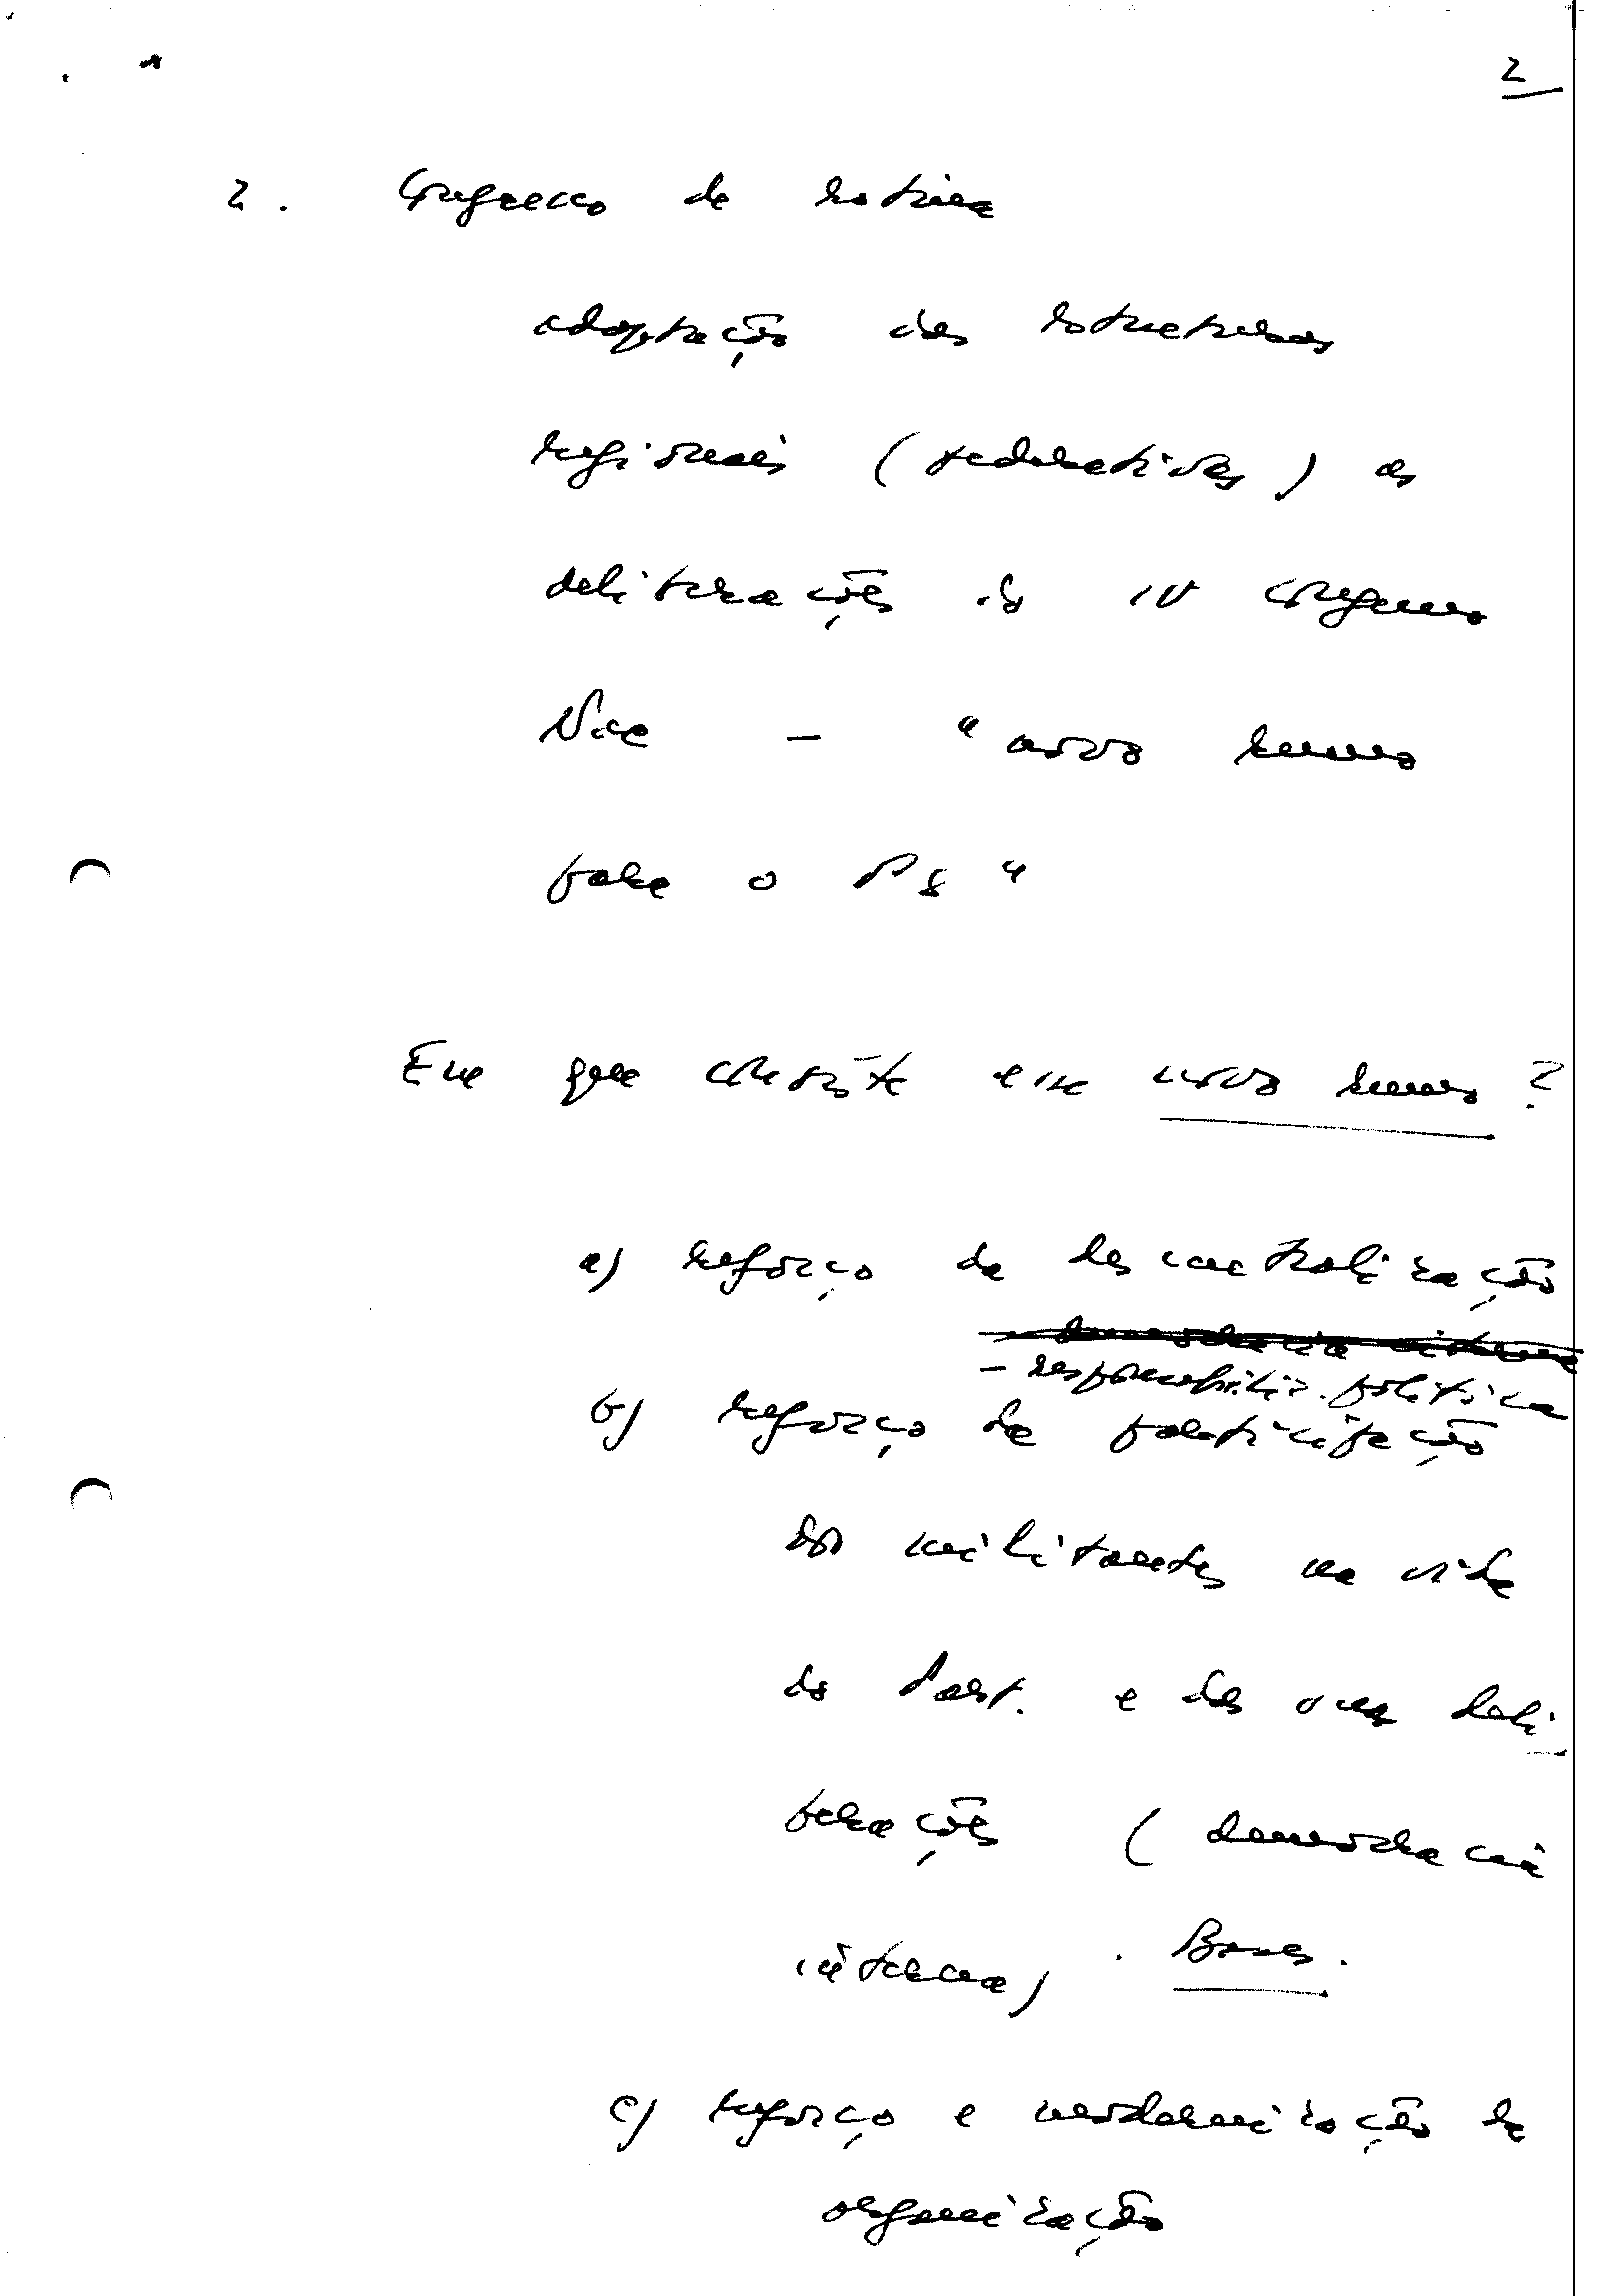 2
2. Congresso de rotina
adaptação das estruturas
regionais (federativas) às
deliberações do IV Congresso
Nac — "novo rumo
para o PS"
Em que consiste esse novo rumo?
a) reforço da descentralização
democracia interna
- responsabiliz. política
b) reforço da participação
dos militantes na vida
do Part. e das suas deli
berações (democracia
interna) . Bases.
c) reforço e modernização da
organização